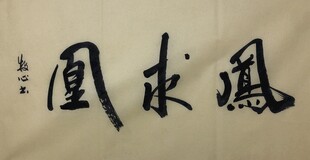 鳳求凰
牧心书